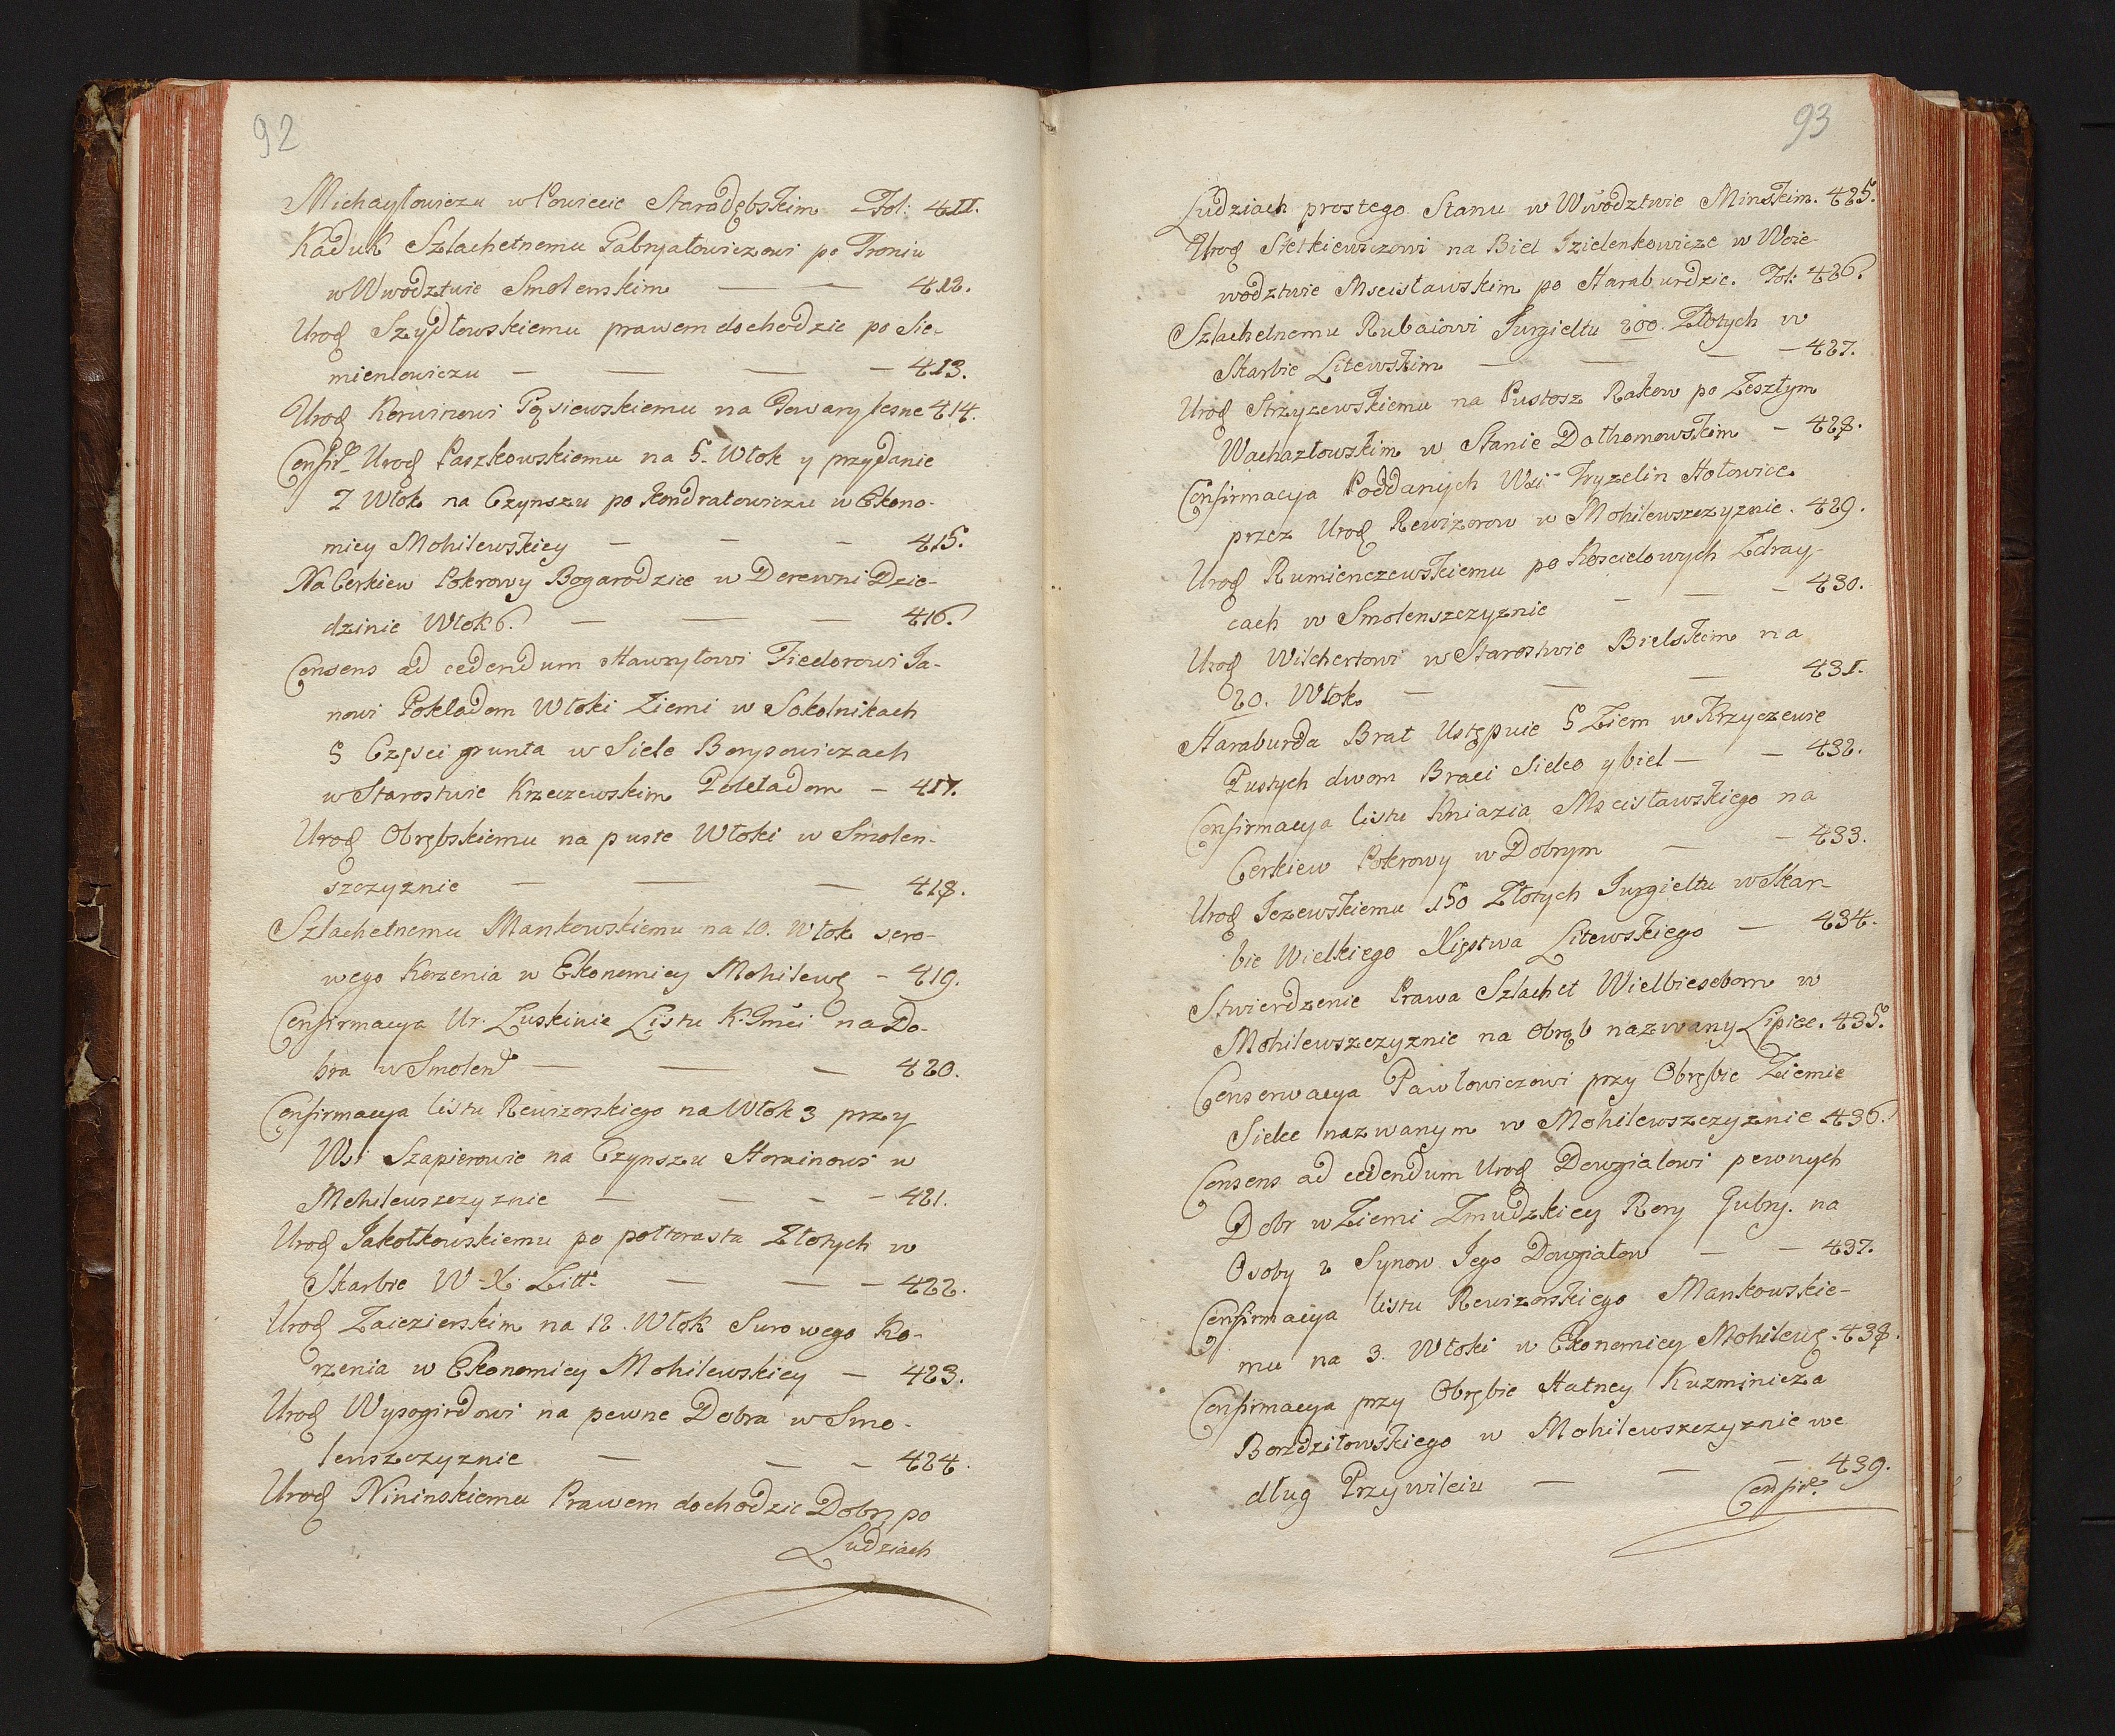 92
Michayłowiczu w Powiecie Starodębskim Fol: 411.
Kaduk Szlachetnemu Gabryałowiczowi po Troniu
w Wwodztwie Smolenskim — — 412.
Urod Szydłowskiemu prawem dochodzic po Sie-
mienłowiczu — — — — 413.
Urod Korwinowi Gąsiewskiemu na Towary lesne 414.
Confir Urod Paszkowskiemu na 5. Włok y przydanie
7 Włok na Czynszu po Kondratowiczu w Ekono-
miey Mohilewskiey — — — 415.
Na Cerkiew Pokrowy Bogarodzice w Derewni Dzie-
dzinie Włok 6. — — — 416.
Consens ad cedendum Hawryłowi Fiedorowi Ja-
nowi Pokladom Włoki Ziemi w Sokolnikach
5 Częsci grunta w Siele Borysowiczach
w Starostwie Krzeczewskim Pokladom — 417.
Urod Obrębskiemu na puste Włoki w Smolen-
szczyznie — — — 418.
Szlachetnemu Mankowskiemu na 10. Włok soro-
wego Korzenia w Ekonomiey Mohilew — 419.
Confirmacya Ur. Łuskinie Listu K. Jmci na Do-
bra w Smolen — — — 420.
Confirmacya listu Rewizorskiego na Włok 3 przy
Wsi Szapierowie na Czynszu Horainowi w
Mohilewszczyznie — — — — 421.
Urod Jakołkowskiemu po połtorasta Złotych w
Skarbie W. X. Litt. — — — 422.
Urod Zaiezierskim na 12. Włok Surowego Ko-
rzenia w Ekonomiey Mohilewskiey — 423.
Urod Wysogirdowi na pewne Dobra w Smo-
lenszczyznie — — — 424.
Urod Nininskiemu Prawem dochodzic Dobr po
Ludziach
93
Ludziach prostego Stanu w Wwodztwie Minskim. 425.
Urod Stetkiewiczowi na Biel Izielenkowicze w Woie-
wodztwie Mscisławskim po Haraburdzie. Fol: 426.
Szlachetnemu Rubaiowi Jurgieltu 200. Złotych w
Skarbie Litewskim — — — — 427.
Urod Strzyzewskiemu na Pustosz Rakow po Zeszłym
Wachazłowskim w Stanie Dołhomowskim — 428.
Confirmacya Poddanych Wsi Tryzelin Hołowice
przez Urod Rewizorow w Mohilewszczyznie. 429.
Urod Rumienczewskiemu po Koscielowych Zdray-
cach w Smolenszczyznie — — — 430.
Urod Wilchertowi w Starostwie Bielskim na
20. Włok — — — 431.
Haraburda Brat Ustępuie 5 Ziem w Krzyczewie
Pustych dwom Braci Sielco y biel — — 432.
Confirmacya listu Kniazia Mscisławskiego na
Cerkiew Pokrowy w Dobrym — — 433.
Urod Jezewskiemu 150 Złotych Jurgieltu w Skar-
bie Wielkiego Xięstwa Litewskiego — 434.
Stwierdzenie Prawa Szlachet Wielbiesebom w
Mohilewszczyznie na Obrąb nazwany Lipiec. 435.
Conserwacya Pawłowiczowi przy Obrębie Ziemie
Sielec nazwanym w Mohilewszczyznie 436.
Consens ad cedendum Urod Dowgiałowi pewnych
Dobr w Ziemi Zmudzkiey Rery Gubry. na
Osoby 2 Synow Jego Dowgiałow — — 437.
Confirmacya listu Rewizorskiego Mankowskie-
mu na 3. Włoki w Ekonomiey Mohilew. 438.
Confirmacya przy Obrębie Hatney Kuzminicza
Borzdziłowskiego w Mohilewszczyznie we
dług Przywileiu — — — 439.
Confir.